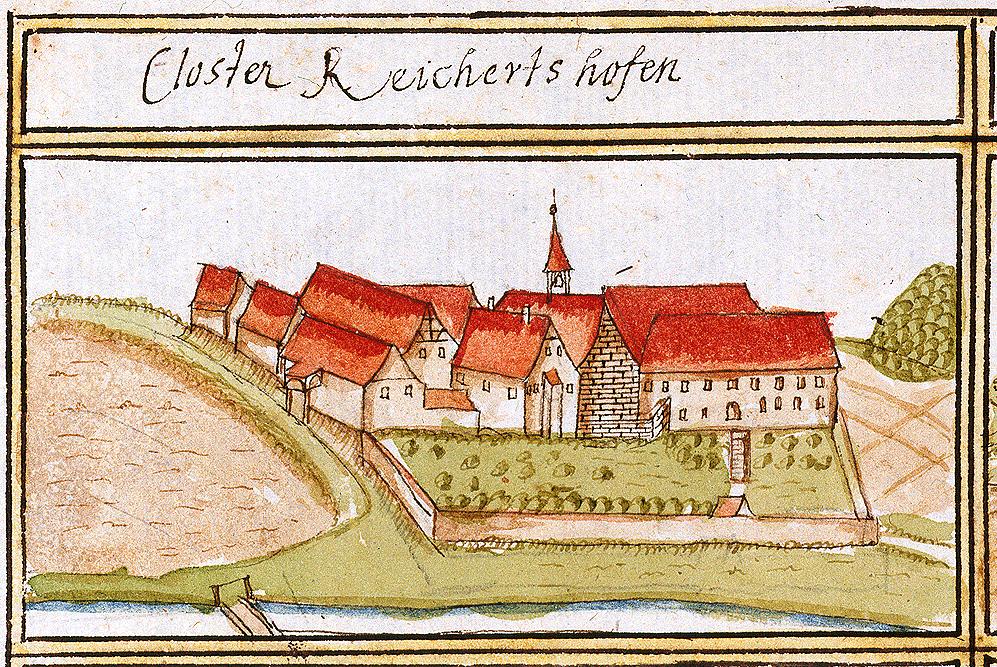 Closter Reichertshofen